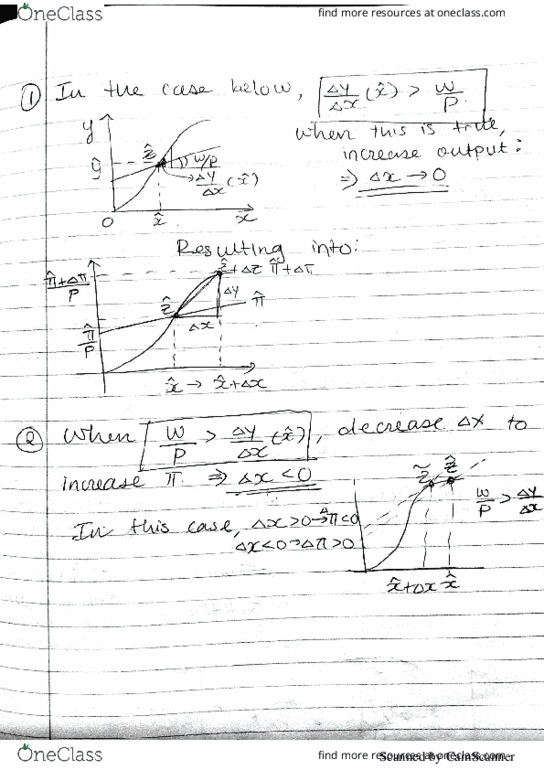 OneClass
find more resources at oneclass.com
① In the case below, Δy/Δx (x̂) > w/p
when this is true,
increase output:
⇒ Δx → 0
y
ŷ
ẑ
w/p
→ Δy/Δx (x̂)
0
x̂
x
Resulting into:
π̂+Δπ/p
ẑ+Δz π̂+Δπ
Δy
ẑ
π̂
π̂/p
Δx
x̂ → x̂+Δx
② When w/p > Δy/Δx (x̂), decrease Δx to
increase π ⇒ Δx < 0
z̃ ẑ
w/p > Δy/Δx
In this case, Δx>0→Δπ<0
Δx<0→Δπ>0
x̂+Δx x̂
OneClass
find more resources at oneclass.com
Scanned by CamScanner